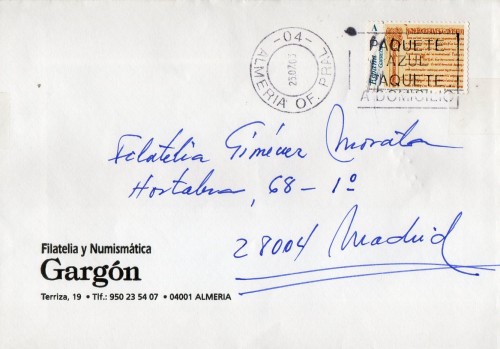 -04-
ALMERIA OF. PRAL
A
España
PAQUETE
AZUL
PAQUETE
A DOMICILIO
Filatelia Giménez
Hortaleza, 68-1º
28004 Madrid
Filatelia y Numismática
Gargón
Terriza, 19 • Tlf.: 950 23 54 07 • 04001 ALMERIA